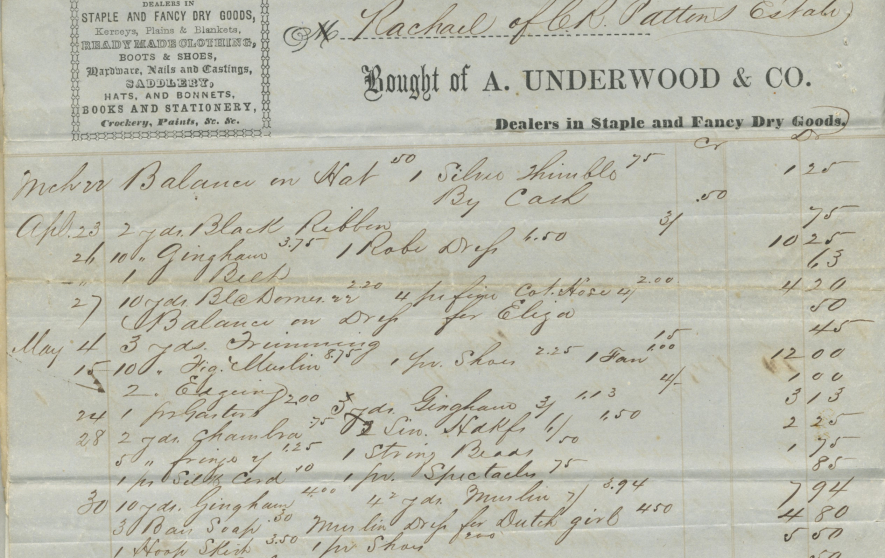 DEALERS IN
STAPLE AND FANCY DRY GOODS,
Kerseys, Plains & Blankets,
READY MADE CLOTHING,
BOOTS & SHOES,
Hardware, Nails and Castings,
SADDLERY,
HATS, AND BONNETS,
BOOKS AND STATIONERY,
Crockery, Paints, &c. &c.
M Rachael of C. R. Pattens Estate
Bought of A. UNDERWOOD & CO.
Dealers in Staple and Fancy Dry Goods.
Cr Dr
Mch 22 Balance on Hat 50 1 Silver Thimble 75 1 25
By Cash .50
Apl. 23 2 yds. Black Ribbon 3/ 75
26 10 " Gingham 3.75 1 Robe Dress 6.50 10 25
" 1 Belt 63
27 10 yds Blc Domes. 22 2.20 4 prs fine Cot. Hose 4/ 2.00 4 20
Balance on Dress for Eliza 50
May 4 3 yds. Trimming 15 45
15 10 " Fig. Muslin 8.75 1 pr. Shoes 2.25 1 Fan 1.00 12 00
2 " Edging 4/- 1 00
24 1 pr Gaiters 2.00 3 yds. Gingham 3/ 1.13 3 13
28 2 yds. Chambra 75 3 Lin. Hdkfs 4/ 1.50 2 25
5 " fringe 2/ 1.25 1 String Beads 50 1 75
1 ps Silk Cord 10 1 pr. Spectacles 75 85
30 10 yds. Gingham 4.00 4 yds. Muslin 7/ 3.94 7 94
3 Bars Soap 30 Muslin Dress for Dutch girl 4.50 4 80
1 Hoop Skirt 3.50 1 pr Shoes 2.00 5 50